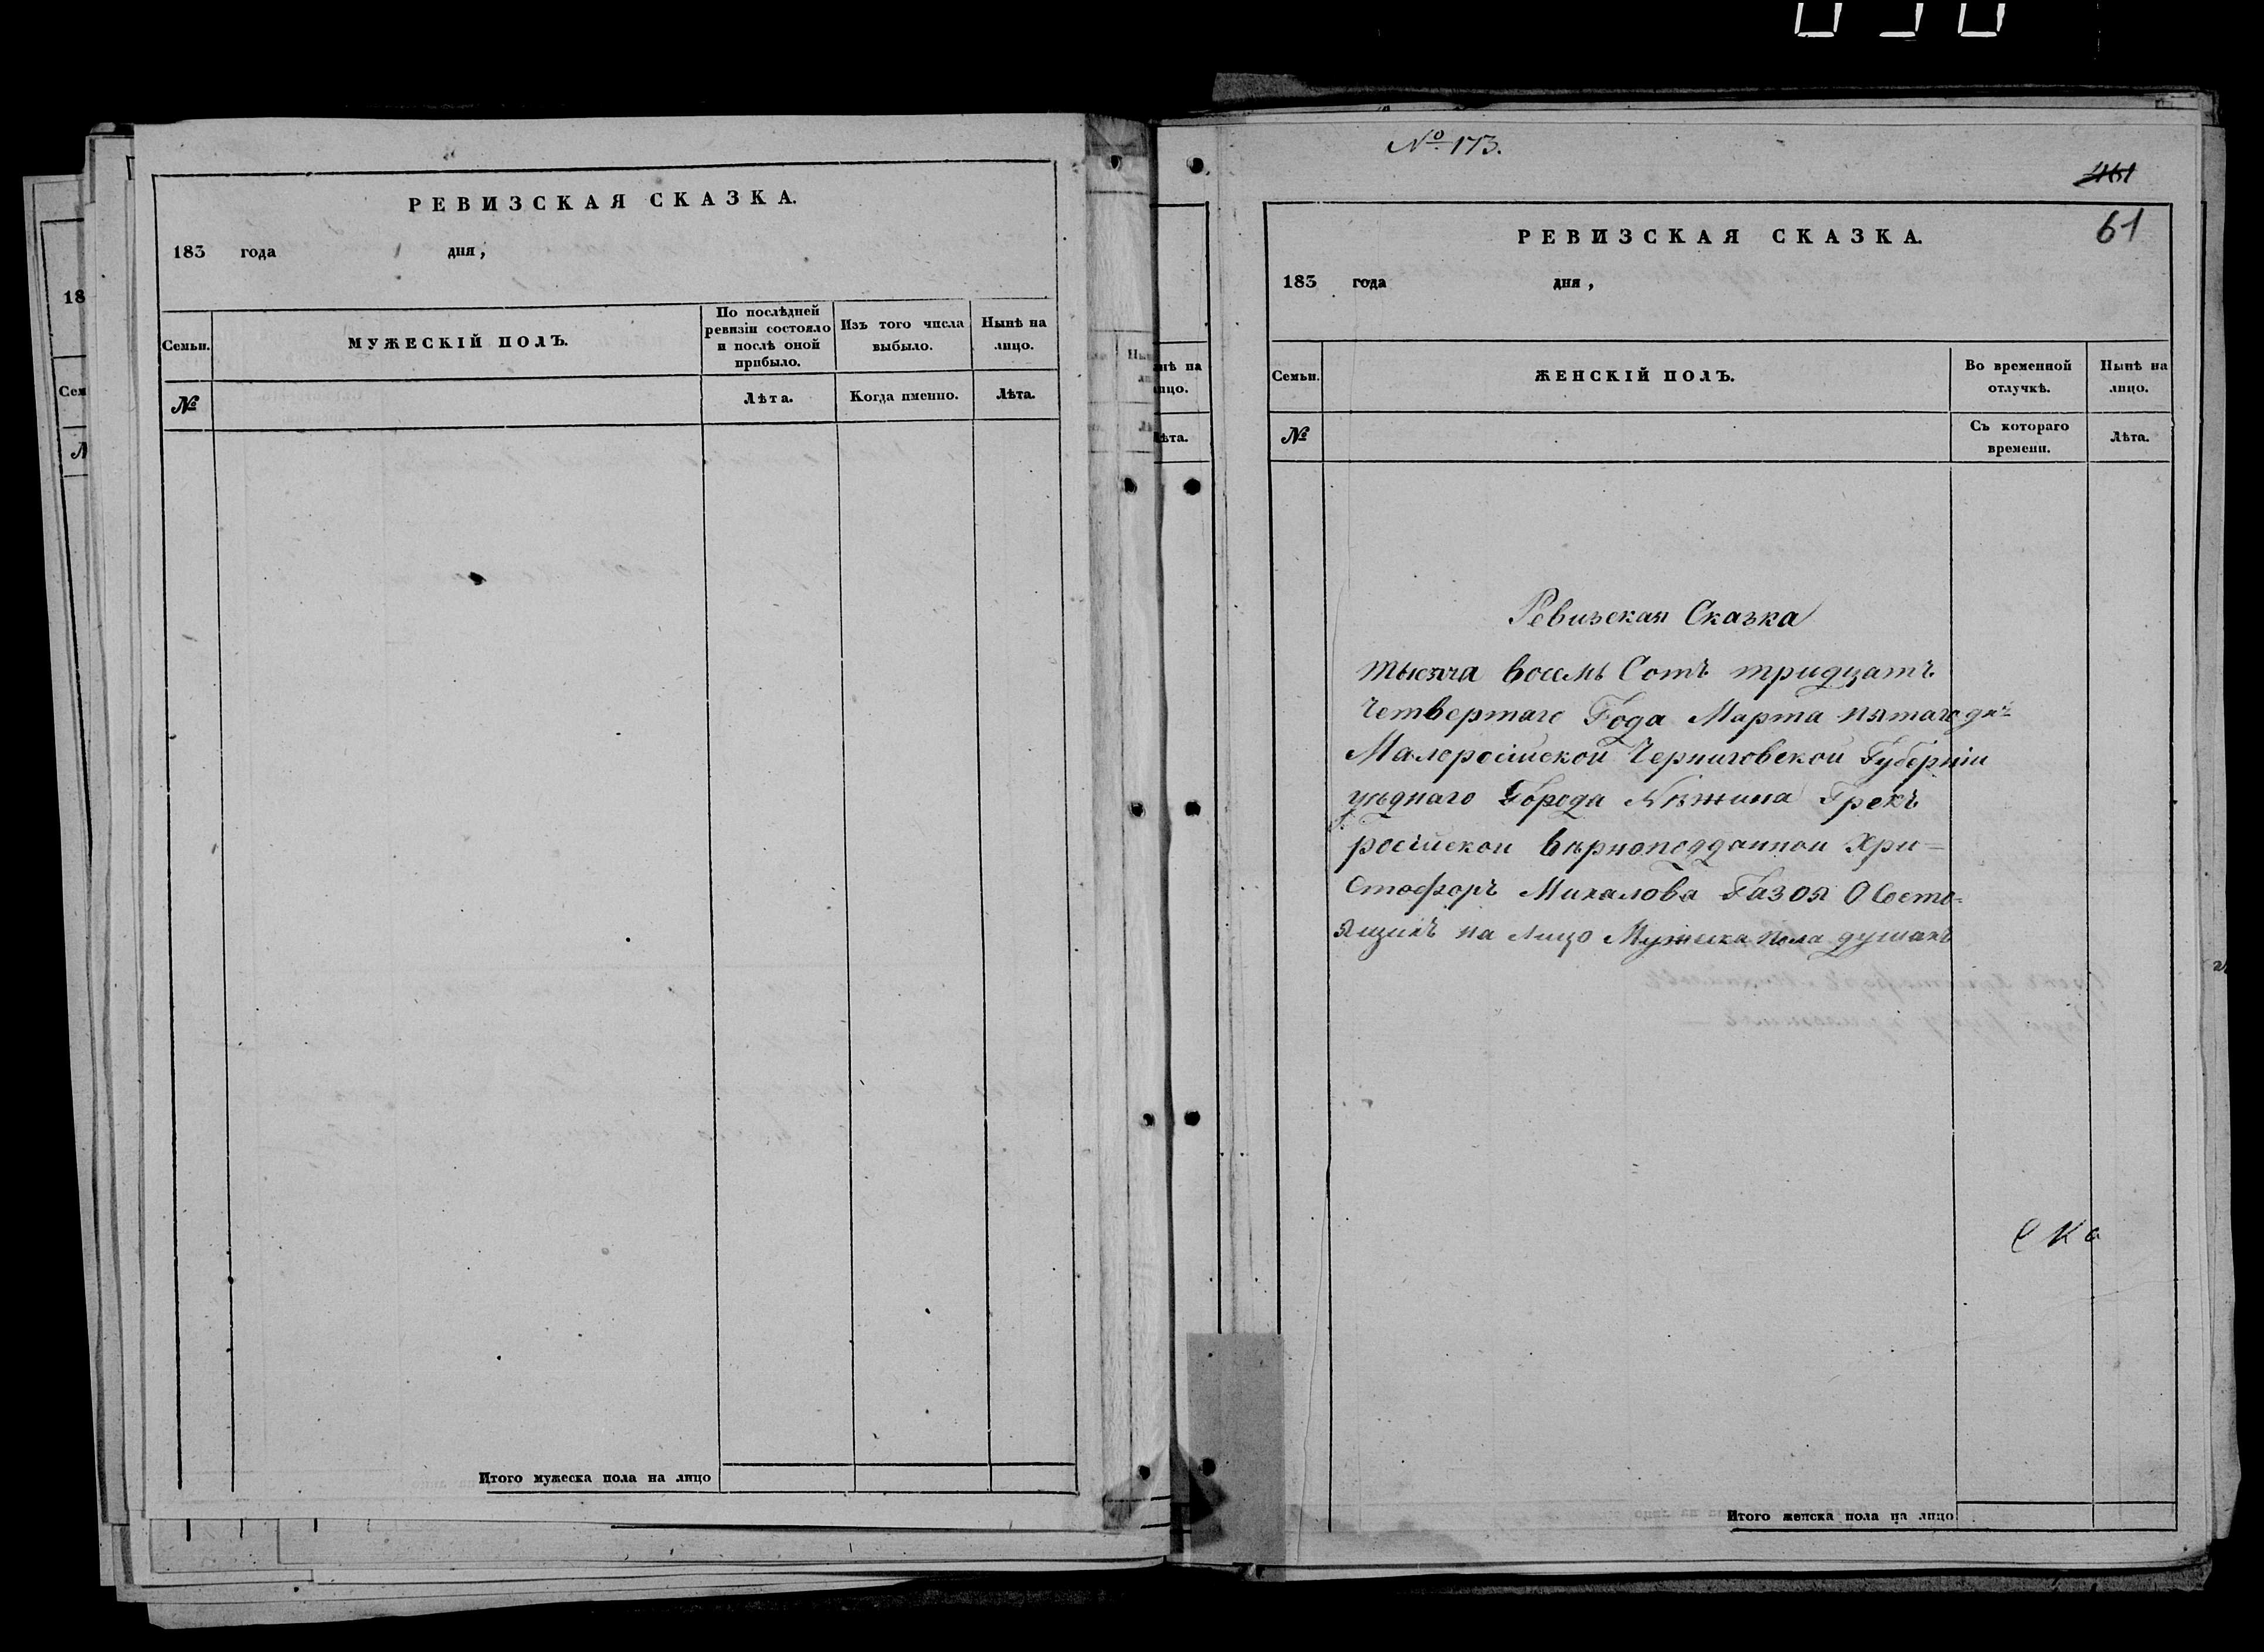 РЕВИЗСКАЯ СКАЗКА.
183 года дня,
Семьи.
МУЖЕСКІЙ ПОЛЪ.
По послѣдней ревизіи состояло и послѣ оной прибыло.
Изъ того числа выбыло.
Нынѣ на лицо.
№
Лѣта.
Когда именно.
Лѣта.
Итого мужеска пола на лицо
№ 173.
461
61
РЕВИЗСКАЯ СКАЗКА.
183 года дня,
Семьи.
ЖЕНСКІЙ ПОЛЪ.
Во временной отлучкѣ.
Нынѣ на лицо.
№
Съ котораго времени.
Лѣта.
Ревизская Сказка
тысяча восемь Сотъ тридцатъ
Четвертаго Года Марта пятаго дн=
Малоросійской Черниговской Губерніи
уѣзднаго Города Нѣжина Грекъ
російской вѣрноподданной Хри=
Стофоръ Михалова Газоя О Состо=
ящихъ на Лицо Мужеска пола душахъ
Итого женска пола на лицо